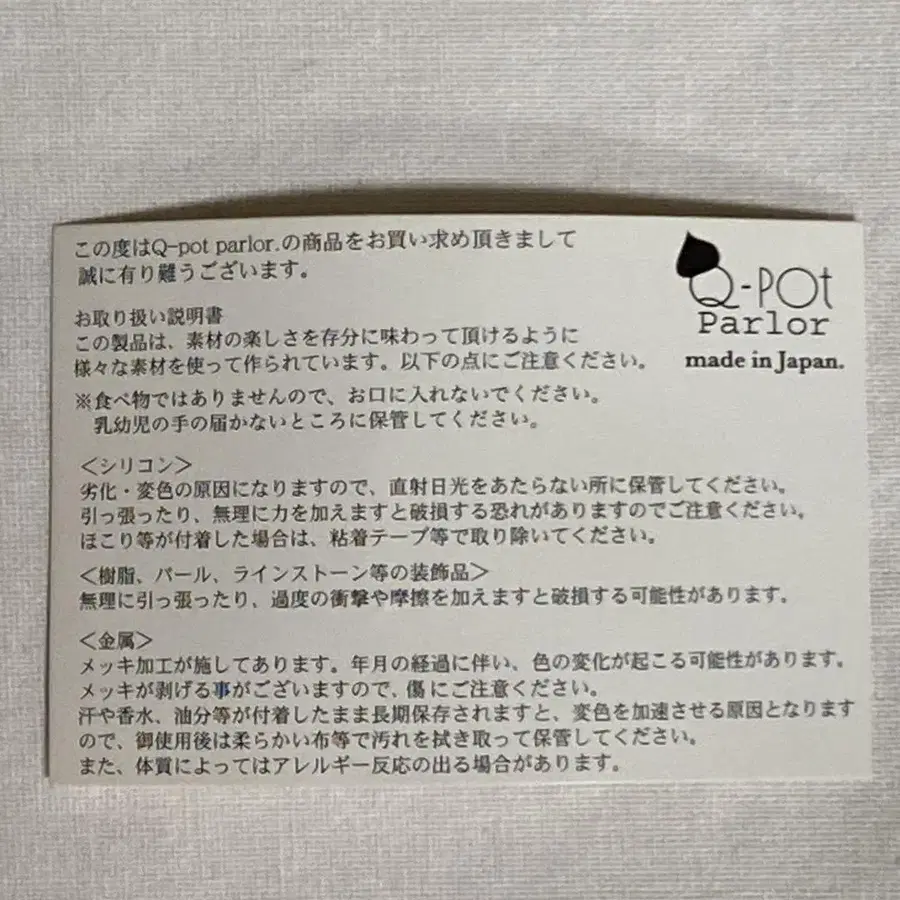 この度はQ-pot parlor.の商品をお買い求め頂きまして
誠に有り難うございます。
Q-POt
Parlor
made in Japan.
お取り扱い説明書
この製品は、素材の楽しさを存分に味わって頂けるように
様々な素材を使って作られています。以下の点にご注意ください。
※食べ物ではありませんので、お口に入れないでください。
乳幼児の手の届かないところに保管してください。
＜シリコン＞
劣化・変色の原因になりますので、直射日光をあたらない所に保管してください。
引っ張ったり、無理に力を加えますと破損する恐れがありますのでご注意ください。
ほこり等が付着した場合は、粘着テープ等で取り除いてください。
＜樹脂、パール、ラインストーン等の装飾品＞
無理に引っ張ったり、過度の衝撃や摩擦を加えますと破損する可能性があります。
＜金属＞
メッキ加工が施してあります。年月の経過に伴い、色の変化が起こる可能性があります。
メッキが剥げる事がございますので、傷にご注意ください。
汗や香水、油分等が付着したまま長期保存されますと、変色を加速させる原因となります
ので、御使用後は柔らかい布等で汚れを拭き取って保管してください。
また、体質によってはアレルギー反応の出る場合があります。